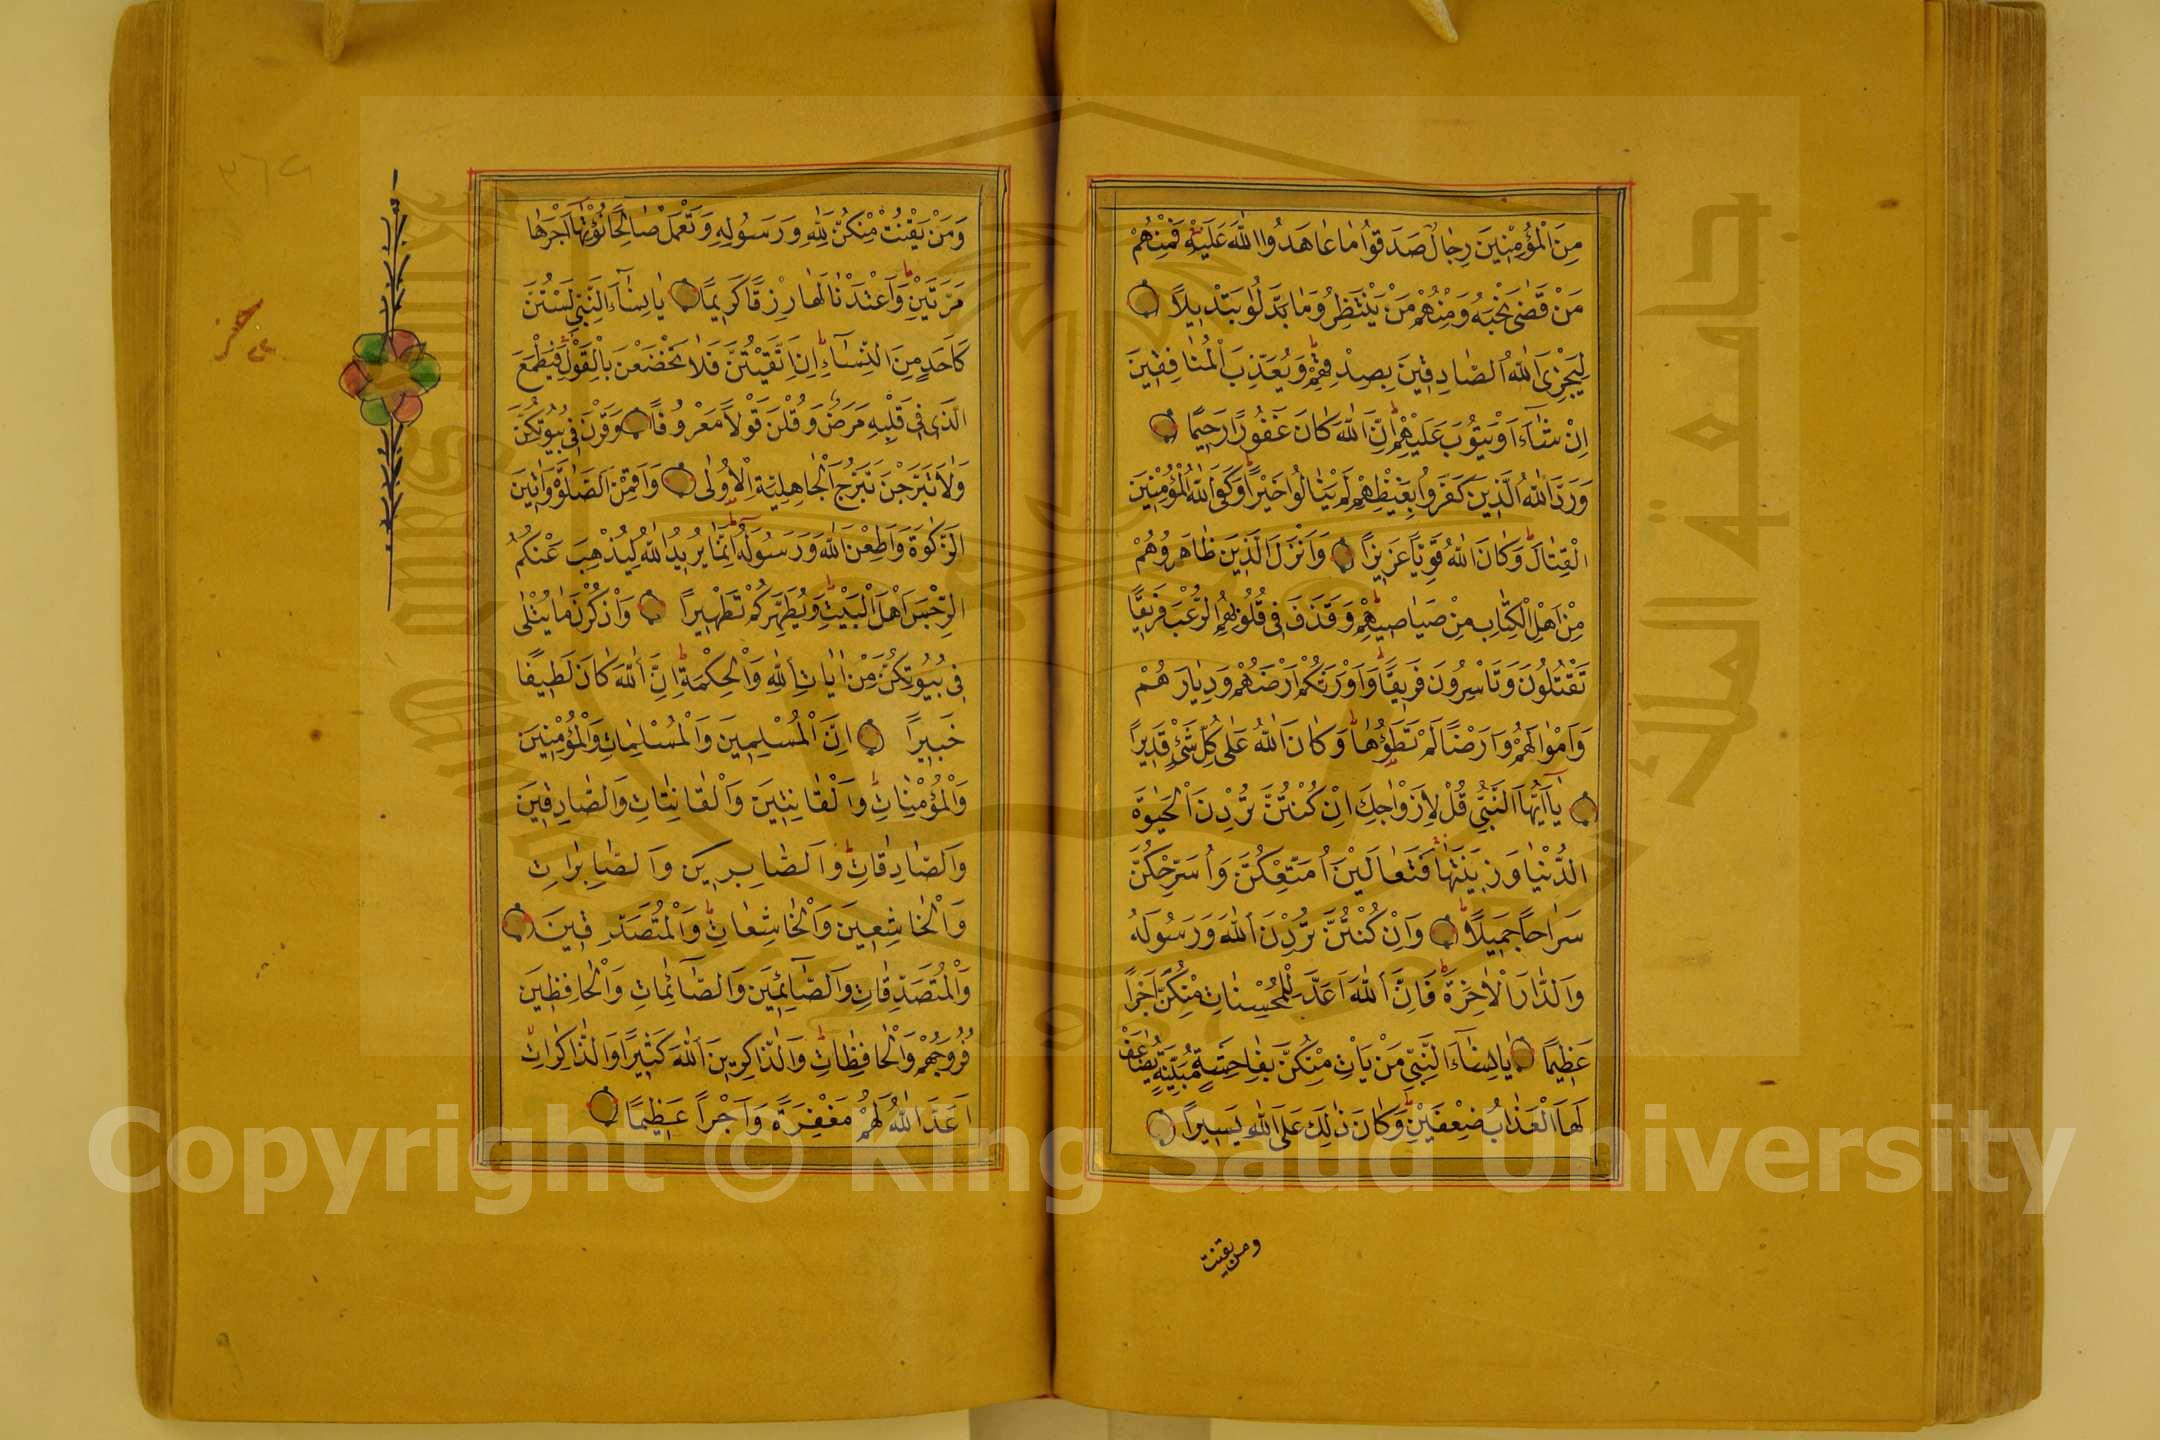 مِنَ الْمُؤْمِنِينَ رِجَالٌ صَدَقُوا مَا عَاهَدُوا اللّٰهَ عَلَيْهِ فَمِنْهُمْ
مَنْ قَضٰى نَحْبَهُ وَمِنْهُمْ مَنْ يَنْتَظِرُ وَمَا بَدَّلُوا تَبْدِيلاً
لِيَجْزِىَ اللّٰهُ الصَّادِقِينَ بِصِدْقِهِمْ وَيُعَذِّبَ الْمُنَافِقِينَ
اِنْ شَآءَ اَوْ يَتُوبَ عَلَيْهِمْ اِنَّ اللّٰهَ كَانَ غَفُورًا رَحِيمًا
وَرَدَّ اللّٰهُ الَّذِينَ كَفَرُوا بِغَيْظِهِمْ لَمْ يَنَالُوا خَيْرًا وَكَفَى اللّٰهُ الْمُؤْمِنِينَ
الْقِتَالَ وَكَانَ اللّٰهُ قَوِيًّا عَزِيزًا وَاَنْزَلَ الَّذِينَ ظَاهَرُوهُمْ
مِنْ اَهْلِ الْكِتَابِ مِنْ صَيَاصِيهِمْ وَقَذَفَ فِى قُلُوبِهِمُ الرُّعْبَ فَرِيقًا
تَقْتُلُونَ وَتَاْسِرُونَ فَرِيقًا وَاَوْرَثَكُمْ اَرْضَهُمْ وَدِيَارَهُمْ
وَاَمْوَالَهُمْ وَاَرْضًا لَمْ تَطَؤُهَا وَكَانَ اللّٰهُ عَلٰى كُلِّ شَىْءٍ قَدِيرًا
يَآ اَيُّهَا النَّبِىُّ قُلْ لِاَزْوَاجِكَ اِنْ كُنْتُنَّ تُرِدْنَ الْحَيٰوةَ
الدُّنْيَا وَزِينَتَهَا فَتَعَالَيْنَ اُمَتِّعْكُنَّ وَاُسَرِّحْكُنَّ
سَرَاحًا جَمِيلًا وَاِنْ كُنْتُنَّ تُرِدْنَ اللّٰهَ وَرَسُولَهُ
وَالدَّارَ الْاٰخِرَةَ فَاِنَّ اللّٰهَ اَعَدَّ لِلْمُحْسِنَاتِ مِنْكُنَّ اَجْرًا
عَظِيمًا يَا نِسَآءَ النَّبِىِّ مَنْ يَاْتِ مِنْكُنَّ بِفَاحِشَةٍ مُبَيِّنَةٍ يُضَاعَفْ
لَهَا الْعَذَابُ ضِعْفَيْنِ وَكَانَ ذٰلِكَ عَلَى اللّٰهِ يَسِيرًا
ومن يقنت
وَمَنْ يَقْنُتْ مِنْكُنَّ لِلّٰهِ وَرَسُولِهِ وَتَعْمَلْ صَالِحًا نُؤْتِهَا اَجْرَهَا
مَرَّتَيْنِ وَاَعْتَدْنَا لَهَا رِزْقًا كَرِيمًا يَا نِسَآءَ النَّبِىِّ لَسْتُنَّ
كَاَحَدٍ مِنَ النِّسَآءِ اِنِ اتَّقَيْتُنَّ فَلَا تَخْضَعْنَ بِالْقَوْلِ فَيَطْمَعَ
الَّذِى فِى قَلْبِهِ مَرَضٌ وَقُلْنَ قَوْلاً مَعْرُوفًا وَقَرْنَ فِى بُيُوتِكُنَّ
وَلَا تَبَرَّجْنَ تَبَرُّجَ الْجَاهِلِيَّةِ الْاُولٰى وَاَقِمْنَ الصَّلٰوةَ وَاٰتِينَ
الزَّكٰوةَ وَاَطِعْنَ اللّٰهَ وَرَسُولَهُ اِنَّمَا يُرِيدُ اللّٰهُ لِيُذْهِبَ عَنْكُمُ
الرِّجْسَ اَهْلَ الْبَيْتِ وَيُطَهِّرَكُمْ تَطْهِيرًا وَاذْكُرْنَ مَا يُتْلٰى
فِى بُيُوتِكُنَّ مِنْ اٰيَاتِ اللّٰهِ وَالْحِكْمَةِ اِنَّ اللّٰهَ كَانَ لَطِيفًا
خَبِيرًا اِنَّ الْمُسْلِمِينَ وَالْمُسْلِمَاتِ وَالْمُؤْمِنِينَ
وَالْمُؤْمِنَاتِ وَالْقَانِتِينَ وَالْقَانِتَاتِ وَالصَّادِقِينَ
وَالصَّادِقَاتِ وَالصَّابِرِينَ وَالصَّابِرَاتِ
وَالْخَاشِعِينَ وَالْخَاشِعَاتِ وَالْمُتَصَدِّقِينَ
وَالْمُتَصَدِّقَاتِ وَالصَّآئِمِينَ وَالصَّآئِمَاتِ وَالْحَافِظِينَ
فُرُوجَهُمْ وَالْحَافِظَاتِ وَالذَّاكِرِينَ اللّٰهَ كَثِيرًا وَالذَّاكِرَاتِ
اَعَدَّ اللّٰهُ لَهُمْ مَغْفِرَةً وَاَجْرًا عَظِيمًا
جامعة الملك
King Saud University
Copyright © King Saud University